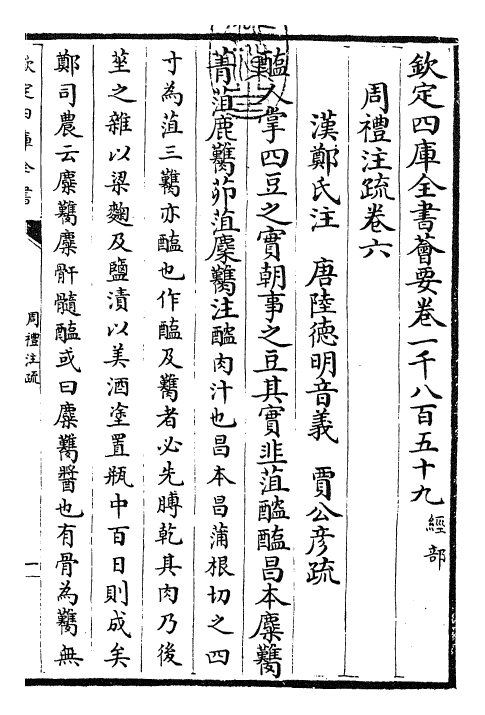 欽定四庫全書薈要卷一千八百五十九 經部
周禮注疏卷六
漢鄭氏注 唐陸德明音義 賈公彦疏
醢人掌四豆之實朝事之豆其實韭菹醓醢昌本麋臡
菁菹鹿臡茆菹麇臡注醓肉汁也昌本昌蒲根切之四
寸為菹三臡亦醢也作醢及臡者必先膊乾其肉乃後
莝之雜以梁麴及鹽漬以美酒塗置瓶中百日則成矣
鄭司農云麋臡麋骭髓醢或曰麋臡醬也有骨為臡無
欽定四庫全書
周禮注疏
一